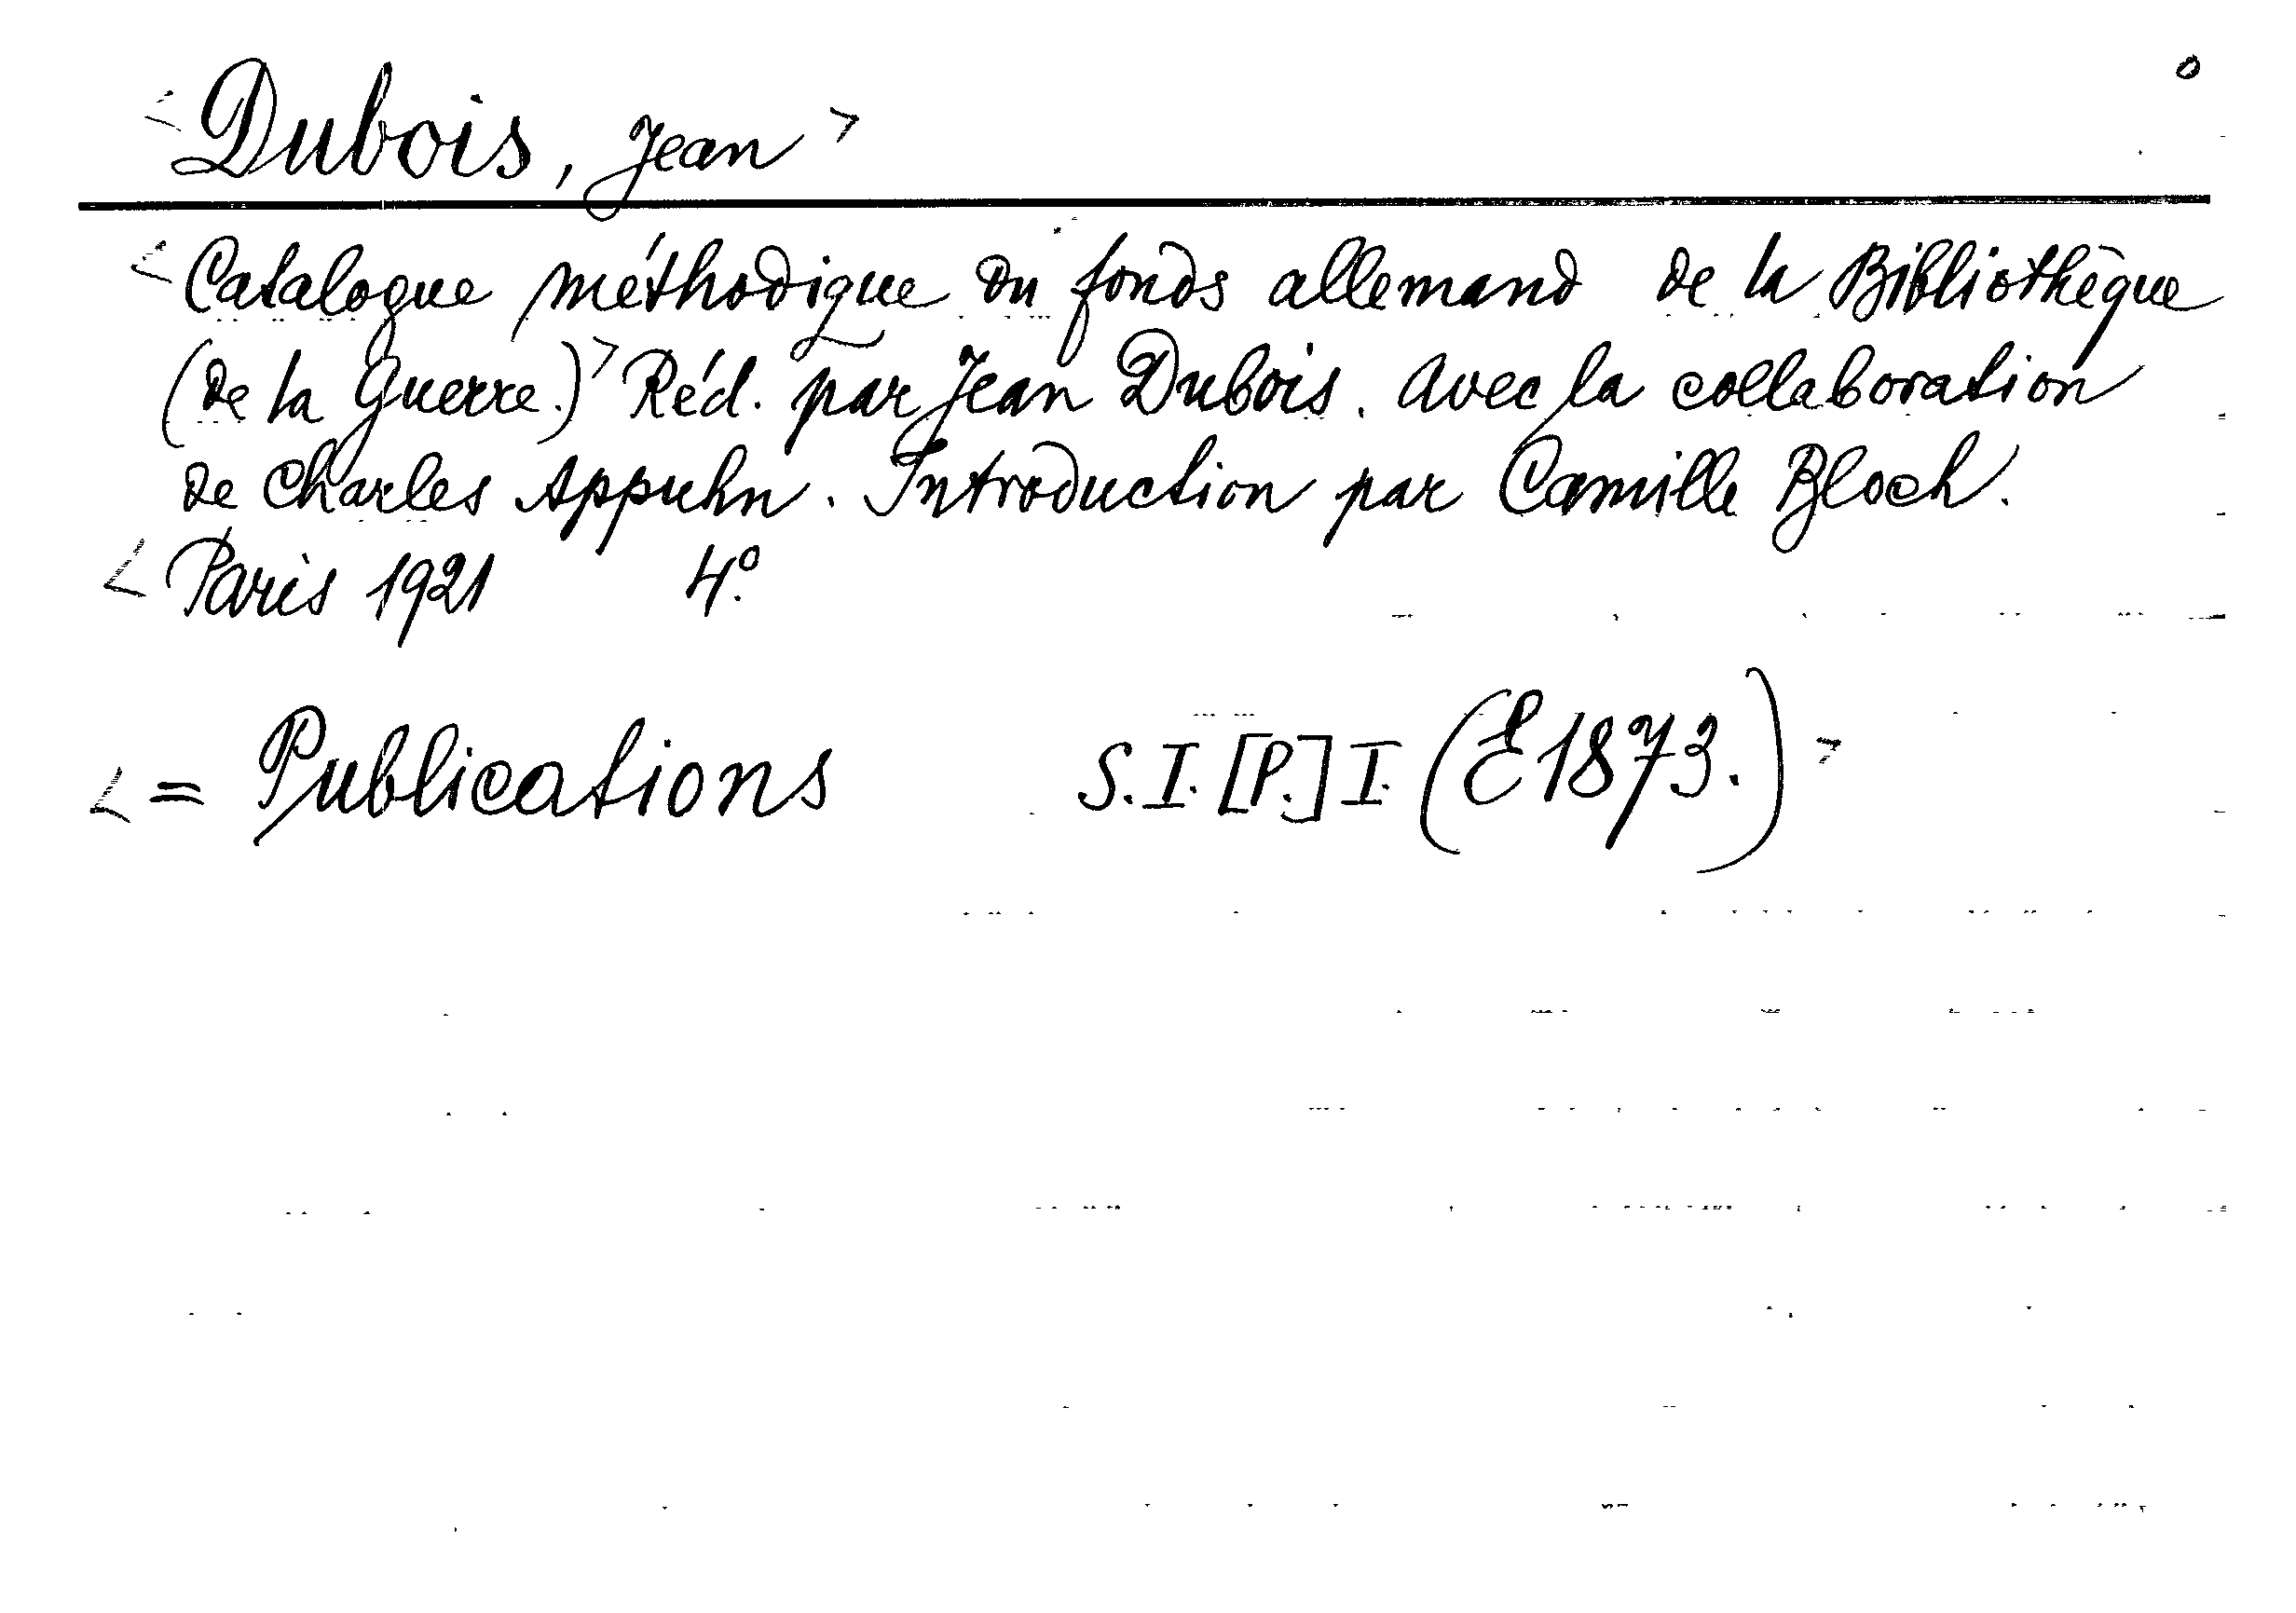 <Dubois, Jean> o
<Catalogue méthodique du fonds allemand de la Bibliothèque
(de la Guerre.)> Réd. par Jean Dubois. Avec la collaboration
de Charles Appuhn. Introduction par Camille Bloch.
<Paris 1921 4.º
<= Publications S.I.[P.]I. (E1873.)>